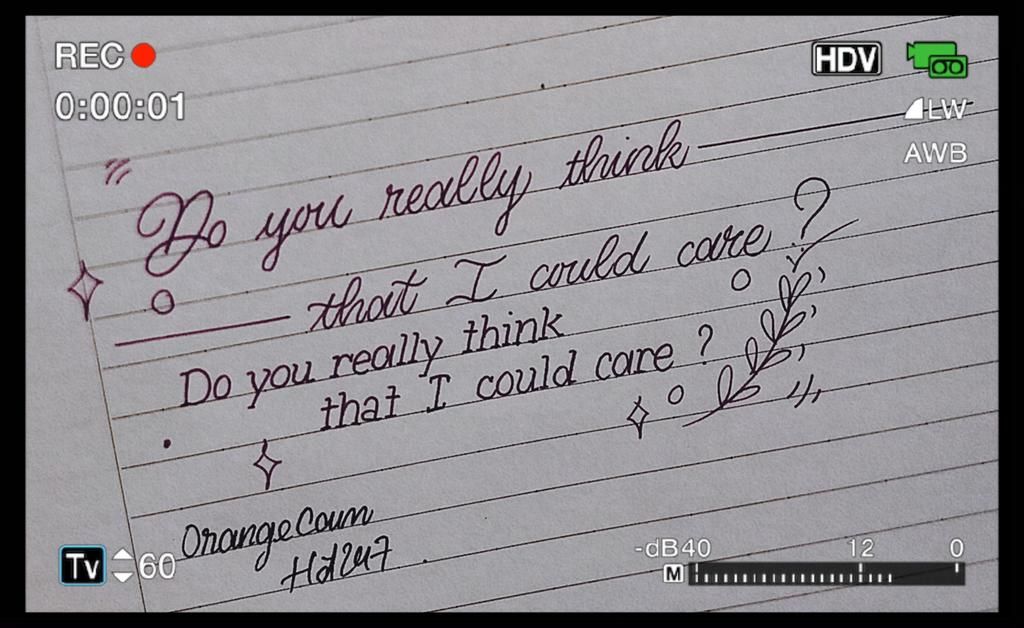 REC
HDV
0:00:01
LW
AWB
"Do you really think
that I could care?
Do you really think
that I could care?
Tv 60
-dB40 12 0
M